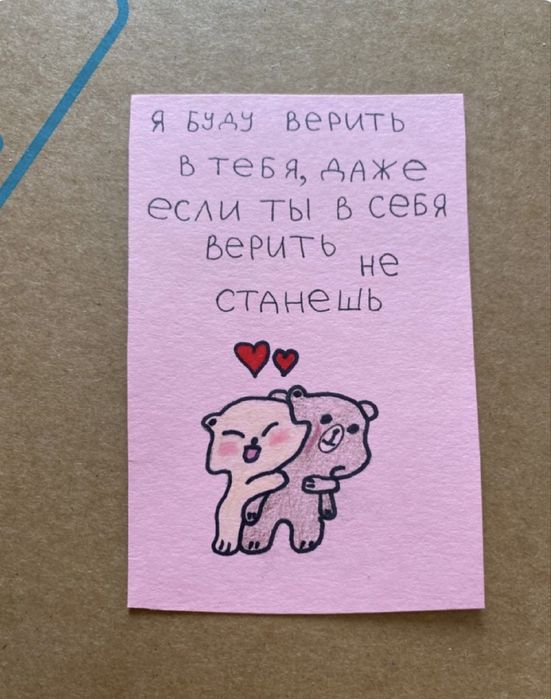 я буду верить
в тебя, даже
если ты в себя
верить не
станешь